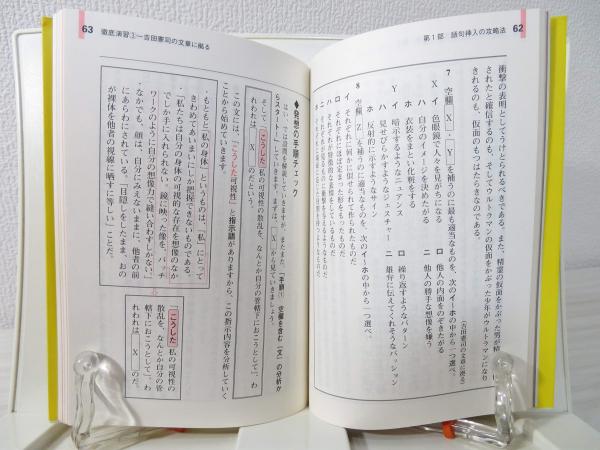 第1部 語句挿入の攻略法 62
衝撃の表明としてうけとられるべきである。また、精霊の仮面をかぶった男が精
されたと確信するのも、そしてウルトラマンの仮面をかぶった少年がウルトラマンになり
きれるのも、仮面のもつはたらきなのである。
(吉田憲司の文章に拠る)
7 空欄 X ・ Y を補うのに最も適当なものを、次のイ～ホの中から一つ選べ。
X
イ 鏡の眼で人々を見がちになる
ロ 他人の内面をのぞきたがる
ハ 自分のイメージを決めたがる
ニ 他人の勝手な想像を嫌う
ホ 衣装をまとい化粧をする
Y
イ 暗示するようなニュアンス
ロ 繰り返すようなパターン
ハ 見せびらかすようなジェスチャー
ニ 雄弁に伝えてくれそうなパッション
ホ 反射的に示すようなサイン
8 空欄 Z を補うのに適当なものを、次のイ～ホの中から一つ選べ。
63 徹底演習③―吉田憲司の文章に拠る
◆発想の手順チェック
はい、では設問を解説していきますが、またまた、「手順① 空欄を含む「文」の分析か
らスタート!」していきます。まずは、 X から見ていきましょう。
そして、こうした私の可視性の散乱を、なんとか自分の管轄下におこうとして、わ
れわれは X のだという。
この文には、「こうした可視性」と指示語がありますから、この指示内容を分析していく
ことから始めていきます。
・もともと「私の身体」というものは、「私」にとって
きわめてあいまいにしか把握できないものである。
・「私たちは自分の身体の可視的な存在を想像のなか
でしか手に入れられない。鏡に映った像を、パッチ
ワークのように自分の想像力で縫い合わすしかない」
・なかでも、顔は、自分にみえないままに、他者の前
にあらわにされている。「目隠しをしたまま、おの
が裸体を他者の視線に晒すに等しい」ことだ。
「こうした 私の可視性の
散乱を、なんとか自分の管
轄下におこうとして」、わ
れわれは X のだ。